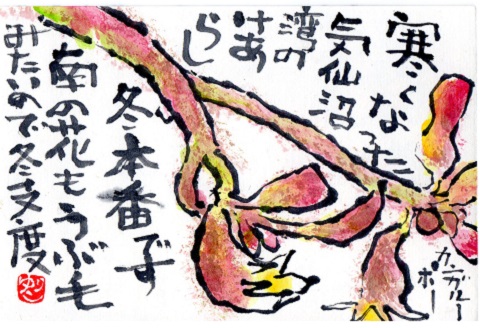 寒くなった
気仙沼
湾の
けあ
らし
冬本番です
南の花もうぶ毛
みたいので冬支度
カンガルー
ポー